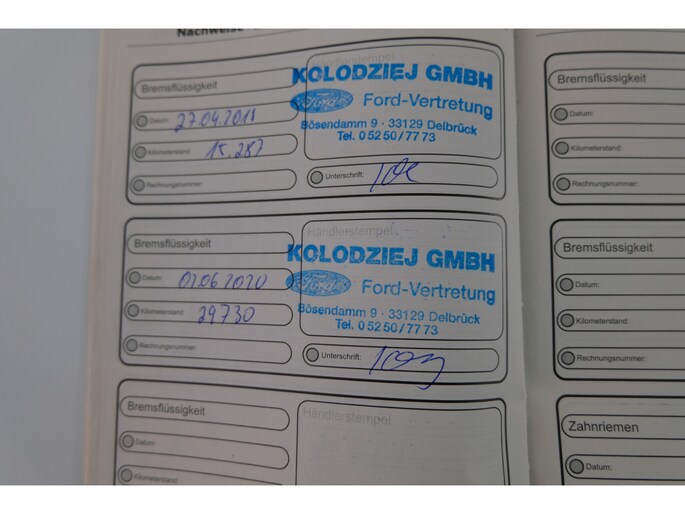 Nachweise
Bremsflüssigkeit
Händlerstempel
KOLODZIEJ GMBH
Ford Ford-Vertretung
Bösendamm 9 · 33129 Delbrück
Tel. 0 52 50 / 77 73
Datum: 27.04.2018
Kilometerstand: 15.287
Rechnungsnummer:
Unterschrift:
Bremsflüssigkeit
Händlerstempel
KOLODZIEJ GMBH
Ford Ford-Vertretung
Bösendamm 9 · 33129 Delbrück
Tel. 0 52 50 / 77 73
Datum: 02.06.2020
Kilometerstand: 29730
Rechnungsnummer:
Unterschrift:
Bremsflüssigkeit
Händlerstempel
Datum:
Kilometerstand:
Bremsflüssigkeit
Datum:
Kilometerstand:
Rechnungsnummer:
Bremsflüssigkeit
Datum:
Kilometerstand:
Rechnungsnummer:
Zahnriemen
Datum: